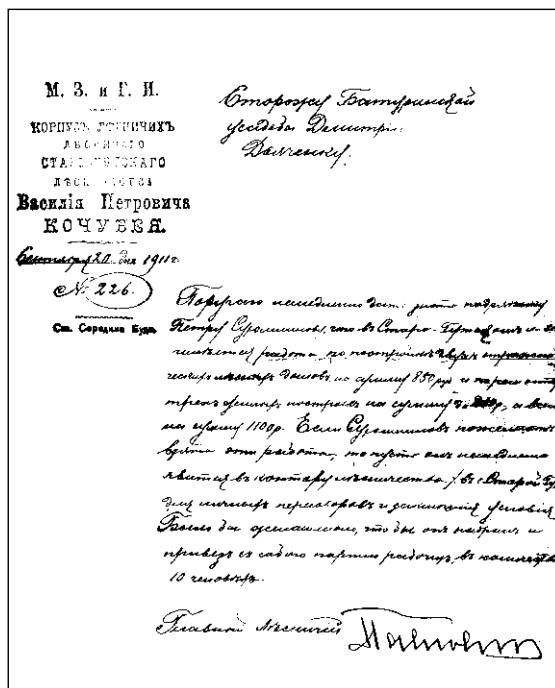 М. З. и Г. И.
КОРПУСЪ ЛѢСНИЧИХЪ
ЛѢСНИЧАГО
СТАРО-ГУТСКАГО
ЛѢСНИЧЕСТВА
Василія Петровича
КОЧУБЕЯ.
Сентября 20 дня 1911 г.
№ 226.
Ст. Середина Буда.
Сторожу Батуринской
усадьбы Дмитрію
Поручаю немедленно дать знать подрядчику
Петру что въ Старо-Гутскомъ
имѣется работа по постройкѣ двухъ
домовъ на сумму 850 руб и
построекъ на сумму а всего
на сумму 1100 р. Если пожелаетъ
взять эти работы, то пусть онъ немедленно
явится въ контору лѣсничества / въ с. Старой
для личныхъ переговоровъ и условія
Было бы желательно, что бы онъ набралъ и
привезъ съ собою партію рабочихъ, въ количествѣ
10 человѣкъ.
Главный Лѣсничій